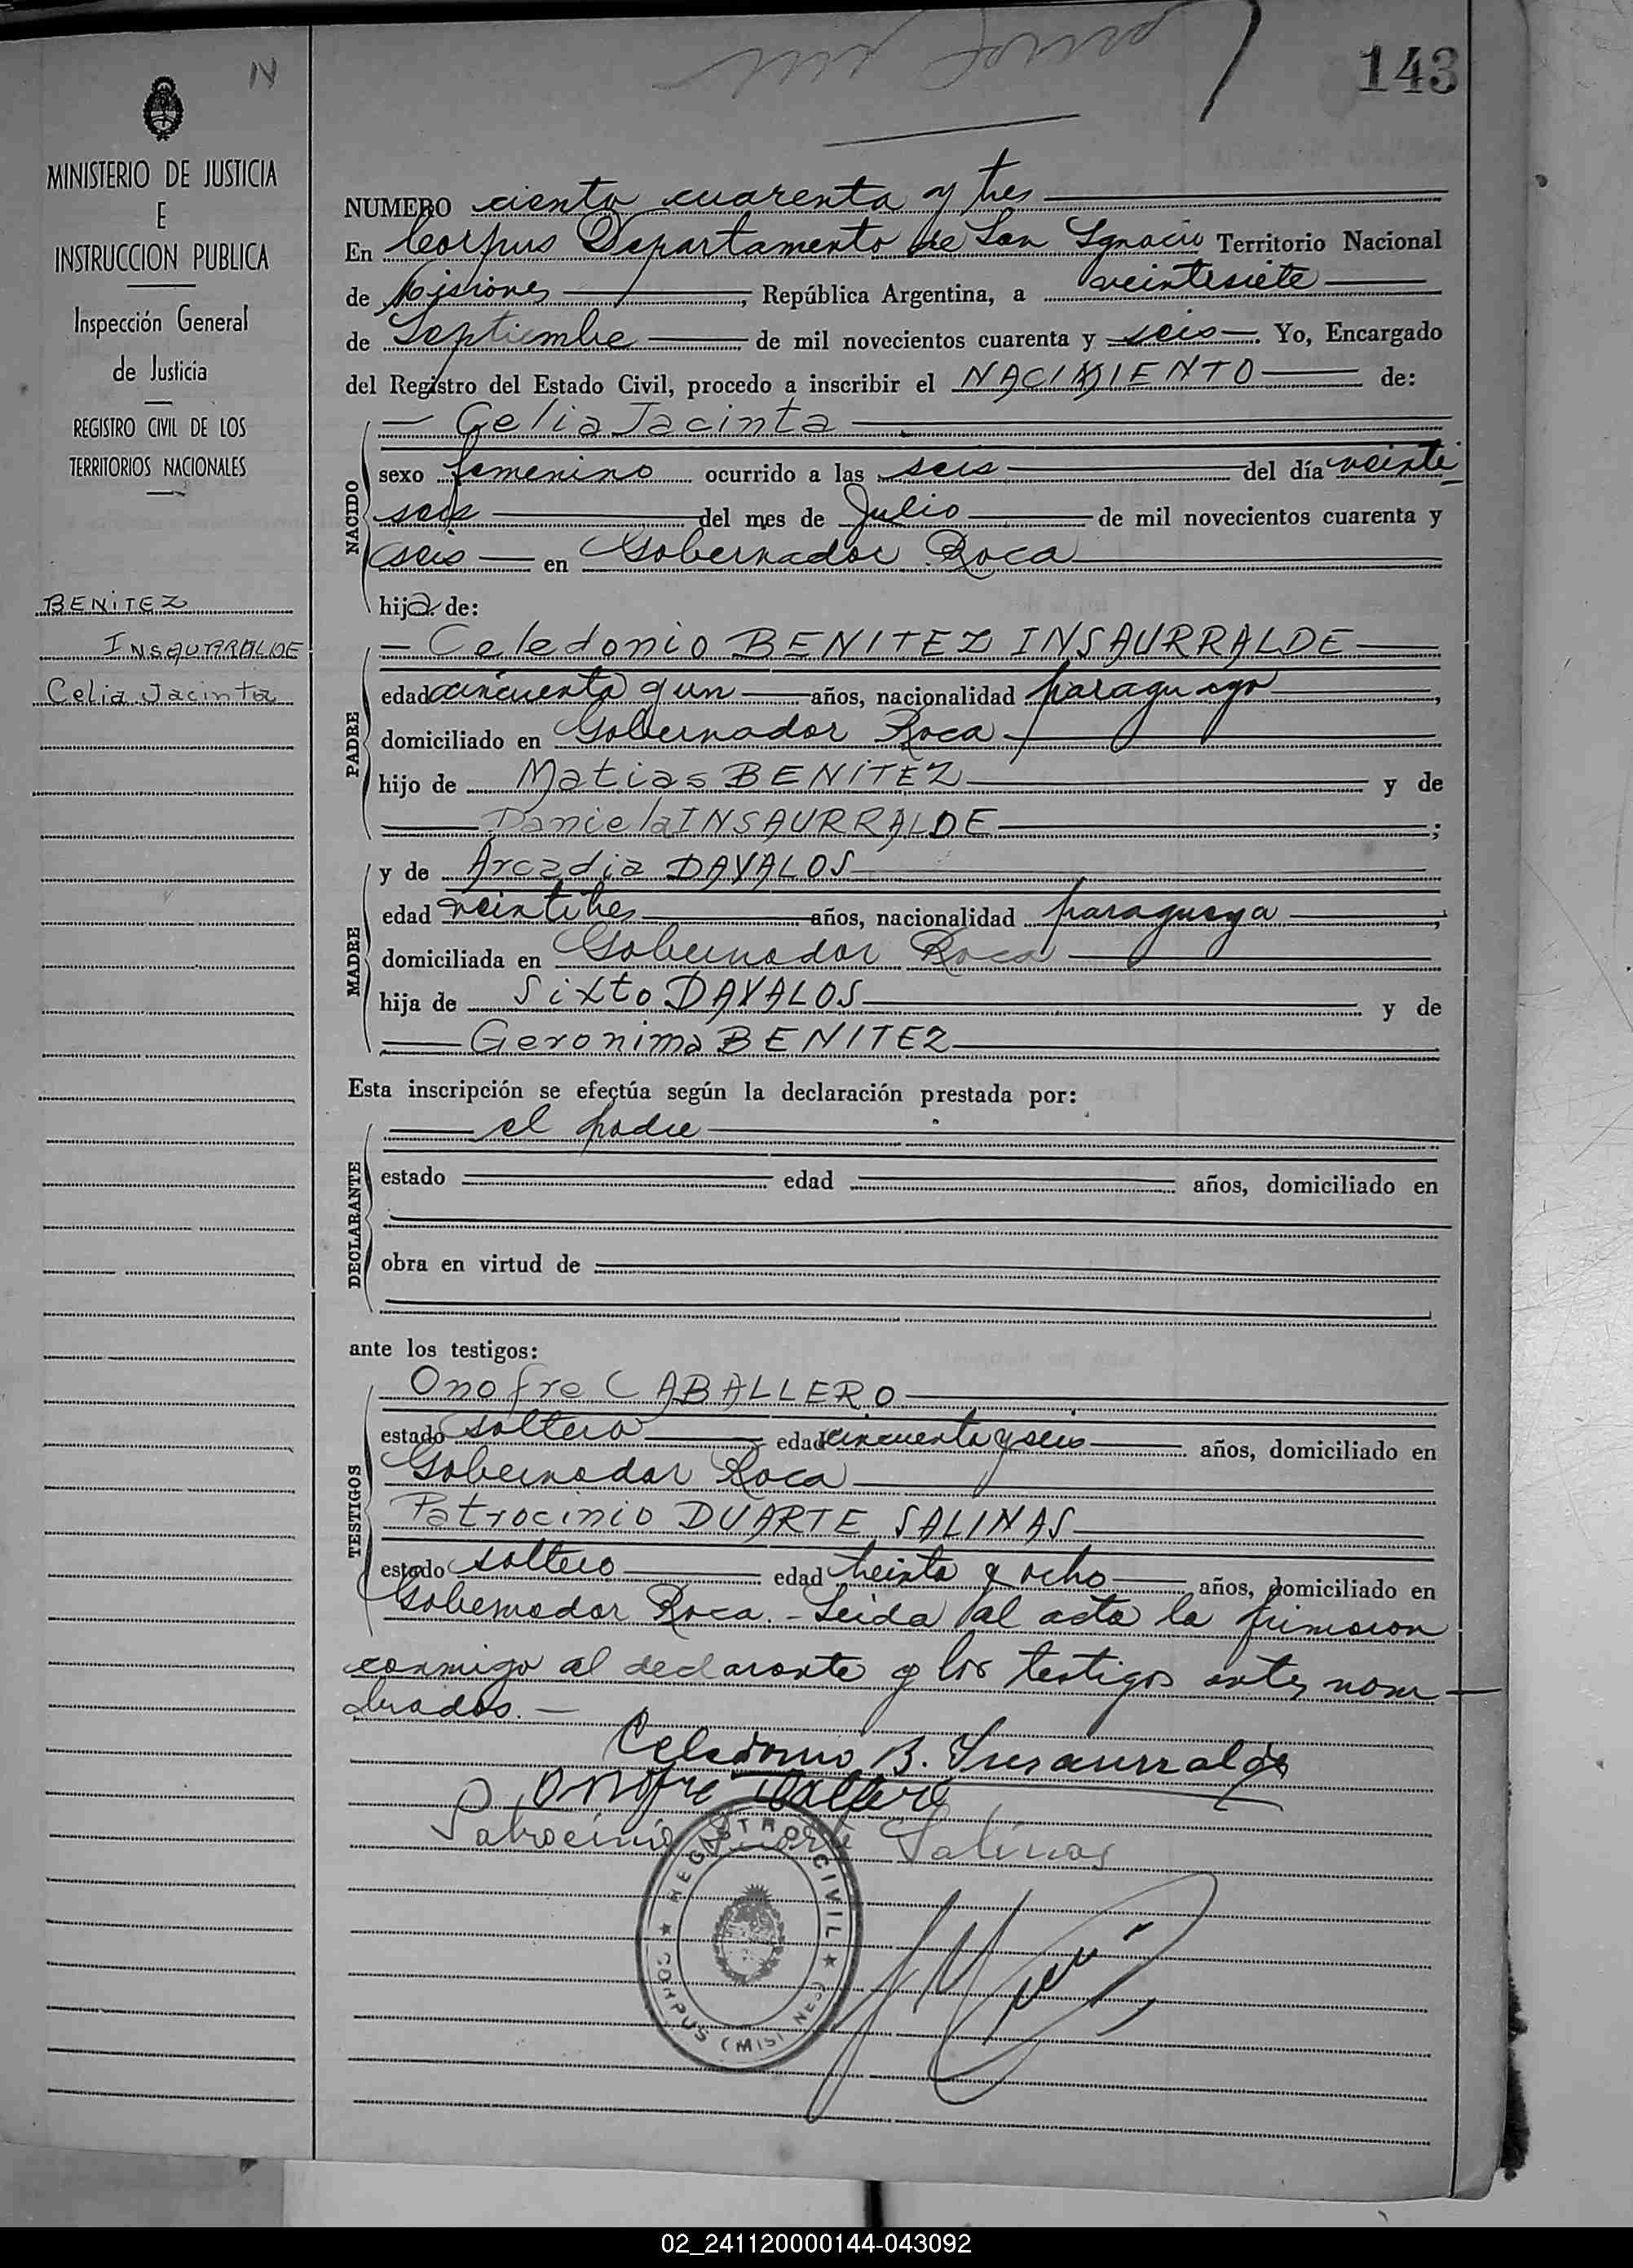 143
N
MINISTERIO DE JUSTICIA
E
INSTRUCCION PUBLICA
Inspección General
de Justicia
REGISTRO CIVIL DE LOS
TERRITORIOS NACIONALES
BENITEZ
INSAURRALDE
Celia Jacinta
NUMERO ciento cuarenta y tres
En Corpus Departamento de San Ignacio Territorio Nacional
de Misiones, República Argentina, a veintesiete
de Septiembre de mil novecientos cuarenta y seis. Yo, Encargado
del Registro del Estado Civil, procedo a inscribir el NACIMIENTO de:
Celia Jacinta
NACIDO
sexo femenino ocurrido a las seis del día veinte
seis del mes de Julio de mil novecientos cuarenta y
seis en Gobernador Roca
hija de:
Celedonio BENITEZ INSAURRALDE
PADRE
edad cincuenta y un años, nacionalidad paraguayo,
domiciliado en Gobernador Roca
hijo de Matias BENITEZ y de
Daniela INSAURRALDE;
y de Arcadia DAVALOS
MADRE
edad veintitres años, nacionalidad paraguaya,
domiciliada en Gobernador Roca
hija de Sixto DAVALOS y de
Geronima BENITEZ
Esta inscripción se efectúa según la declaración prestada por:
el padre
DECLARANTE
estado edad años, domiciliado en
obra en virtud de
ante los testigos:
Onofre CABALLERO
TESTIGOS
estado soltero edad cincuenta y seis años, domiciliado en
Gobernador Roca
Patrocinio DUARTE SALINAS
estado soltero edad treinta y ocho años, domiciliado en
Gobernador Roca.- Leida el acta la firmaron
conmigo el declarante y los testigos antes nom-
brados.-
Celedonio B. Insaurralde
Onofre
Patrocinio Duarte Salinas
REGISTRO CIVIL
CORPUS (MISIONES)
02_241120000144-043092